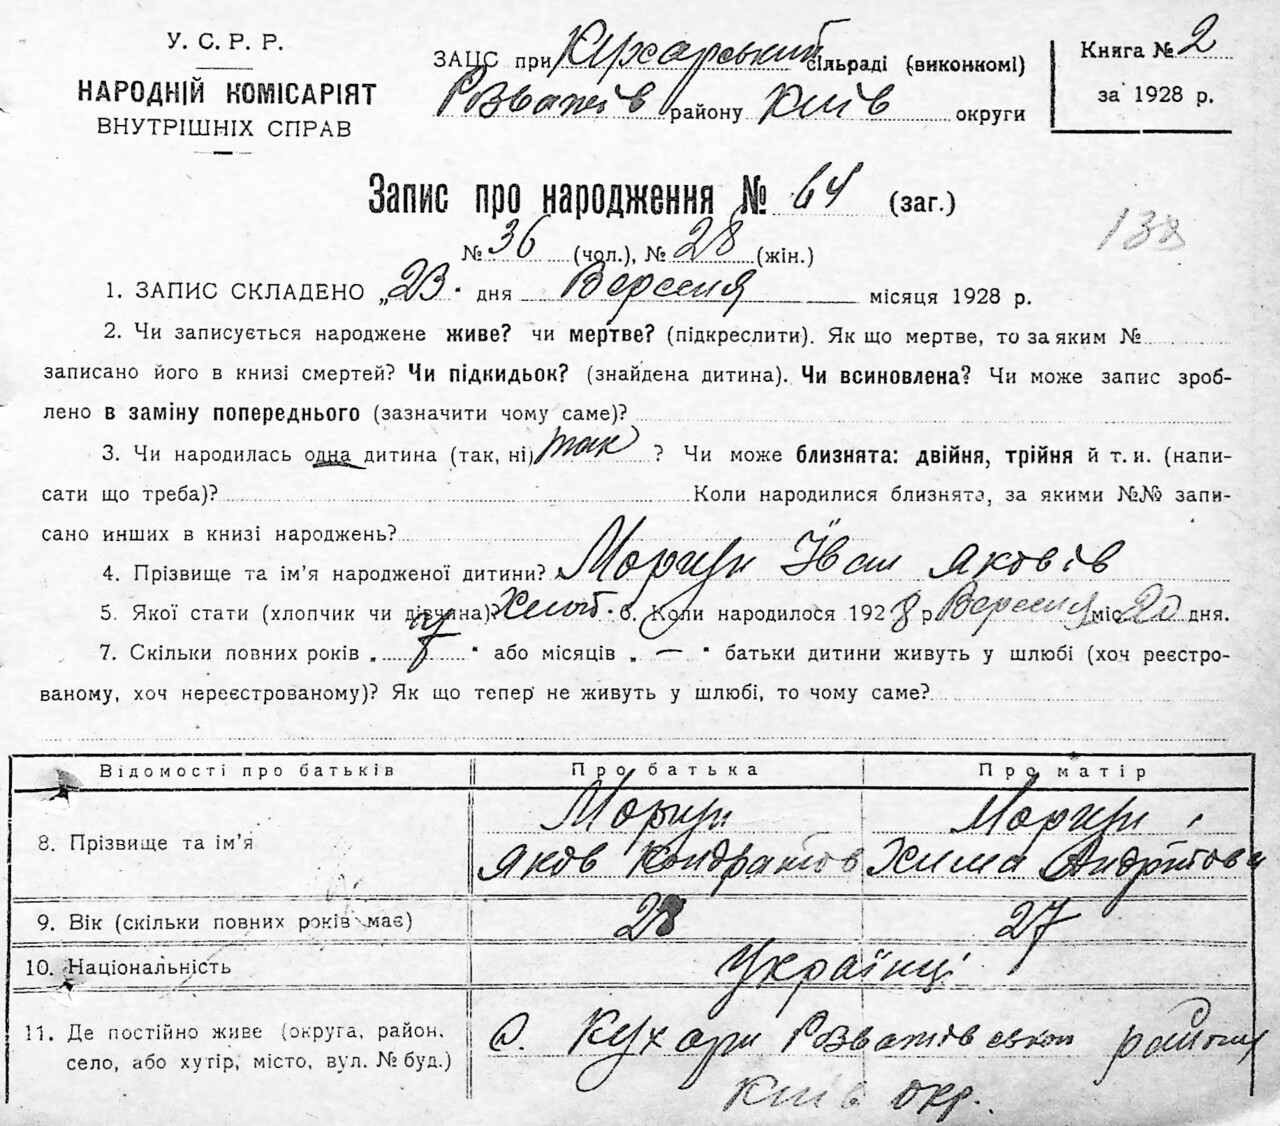 У. С. Р. Р.
НАРОДНІЙ КОМІСАРІЯТ
ВНУТРІШНІХ СПРАВ
ЗАЦС при Кухарський сільраді (виконкомі)
Розважів району Київ округи
Книга № 2
за 1928 р.
Запис про народження № 64 (заг.)
№ 36 (чол.), № 28 (жін.)
138
1. ЗАПИС СКЛАДЕНО „23" дня Вересня місяця 1928 р.
2. Чи записується народжене живе? чи мертве? (підкреслити). Як що мертве, то за яким №
записано його в книзі смертей? Чи підкидьок? (знайдена дитина). Чи всиновлена? Чи може запис зроб-
лено в заміну попереднього (зазначити чому саме)?
3. Чи народилась одна дитина (так, ні) так ? Чи може близнята: двійня, трійня й т. и. (напи-
сати що треба)? Коли народилися близнята, за якими №№ запи-
сано инших в книзі народжень?
4. Прізвище та ім'я народженої дитини? Моргун Іван Яковів
5. Якої стати (хлопчик чи дівчина)? Хлоп. 6. Коли народилося 1928 р. Вересня міс 20 дня.
7. Скільки повних років „ " або місяців „ — " батьки дитини живуть у шлюбі (хоч реєстро-
ваному, хоч нереєстрованому)? Як що тепер не живуть у шлюбі, то чому саме?
Відомості про батьків Про батька Про матір
8. Прізвище та ім'я Моргун Моргун
Яков Кондратов Хима
9. Вік (скільки повних років має) 28 27
10. Національність Українці
11. Де постійно живе (округа, район, село, або хутір, місто, вул. № буд.) с. Кухари Розважівськ району
Київ окр.